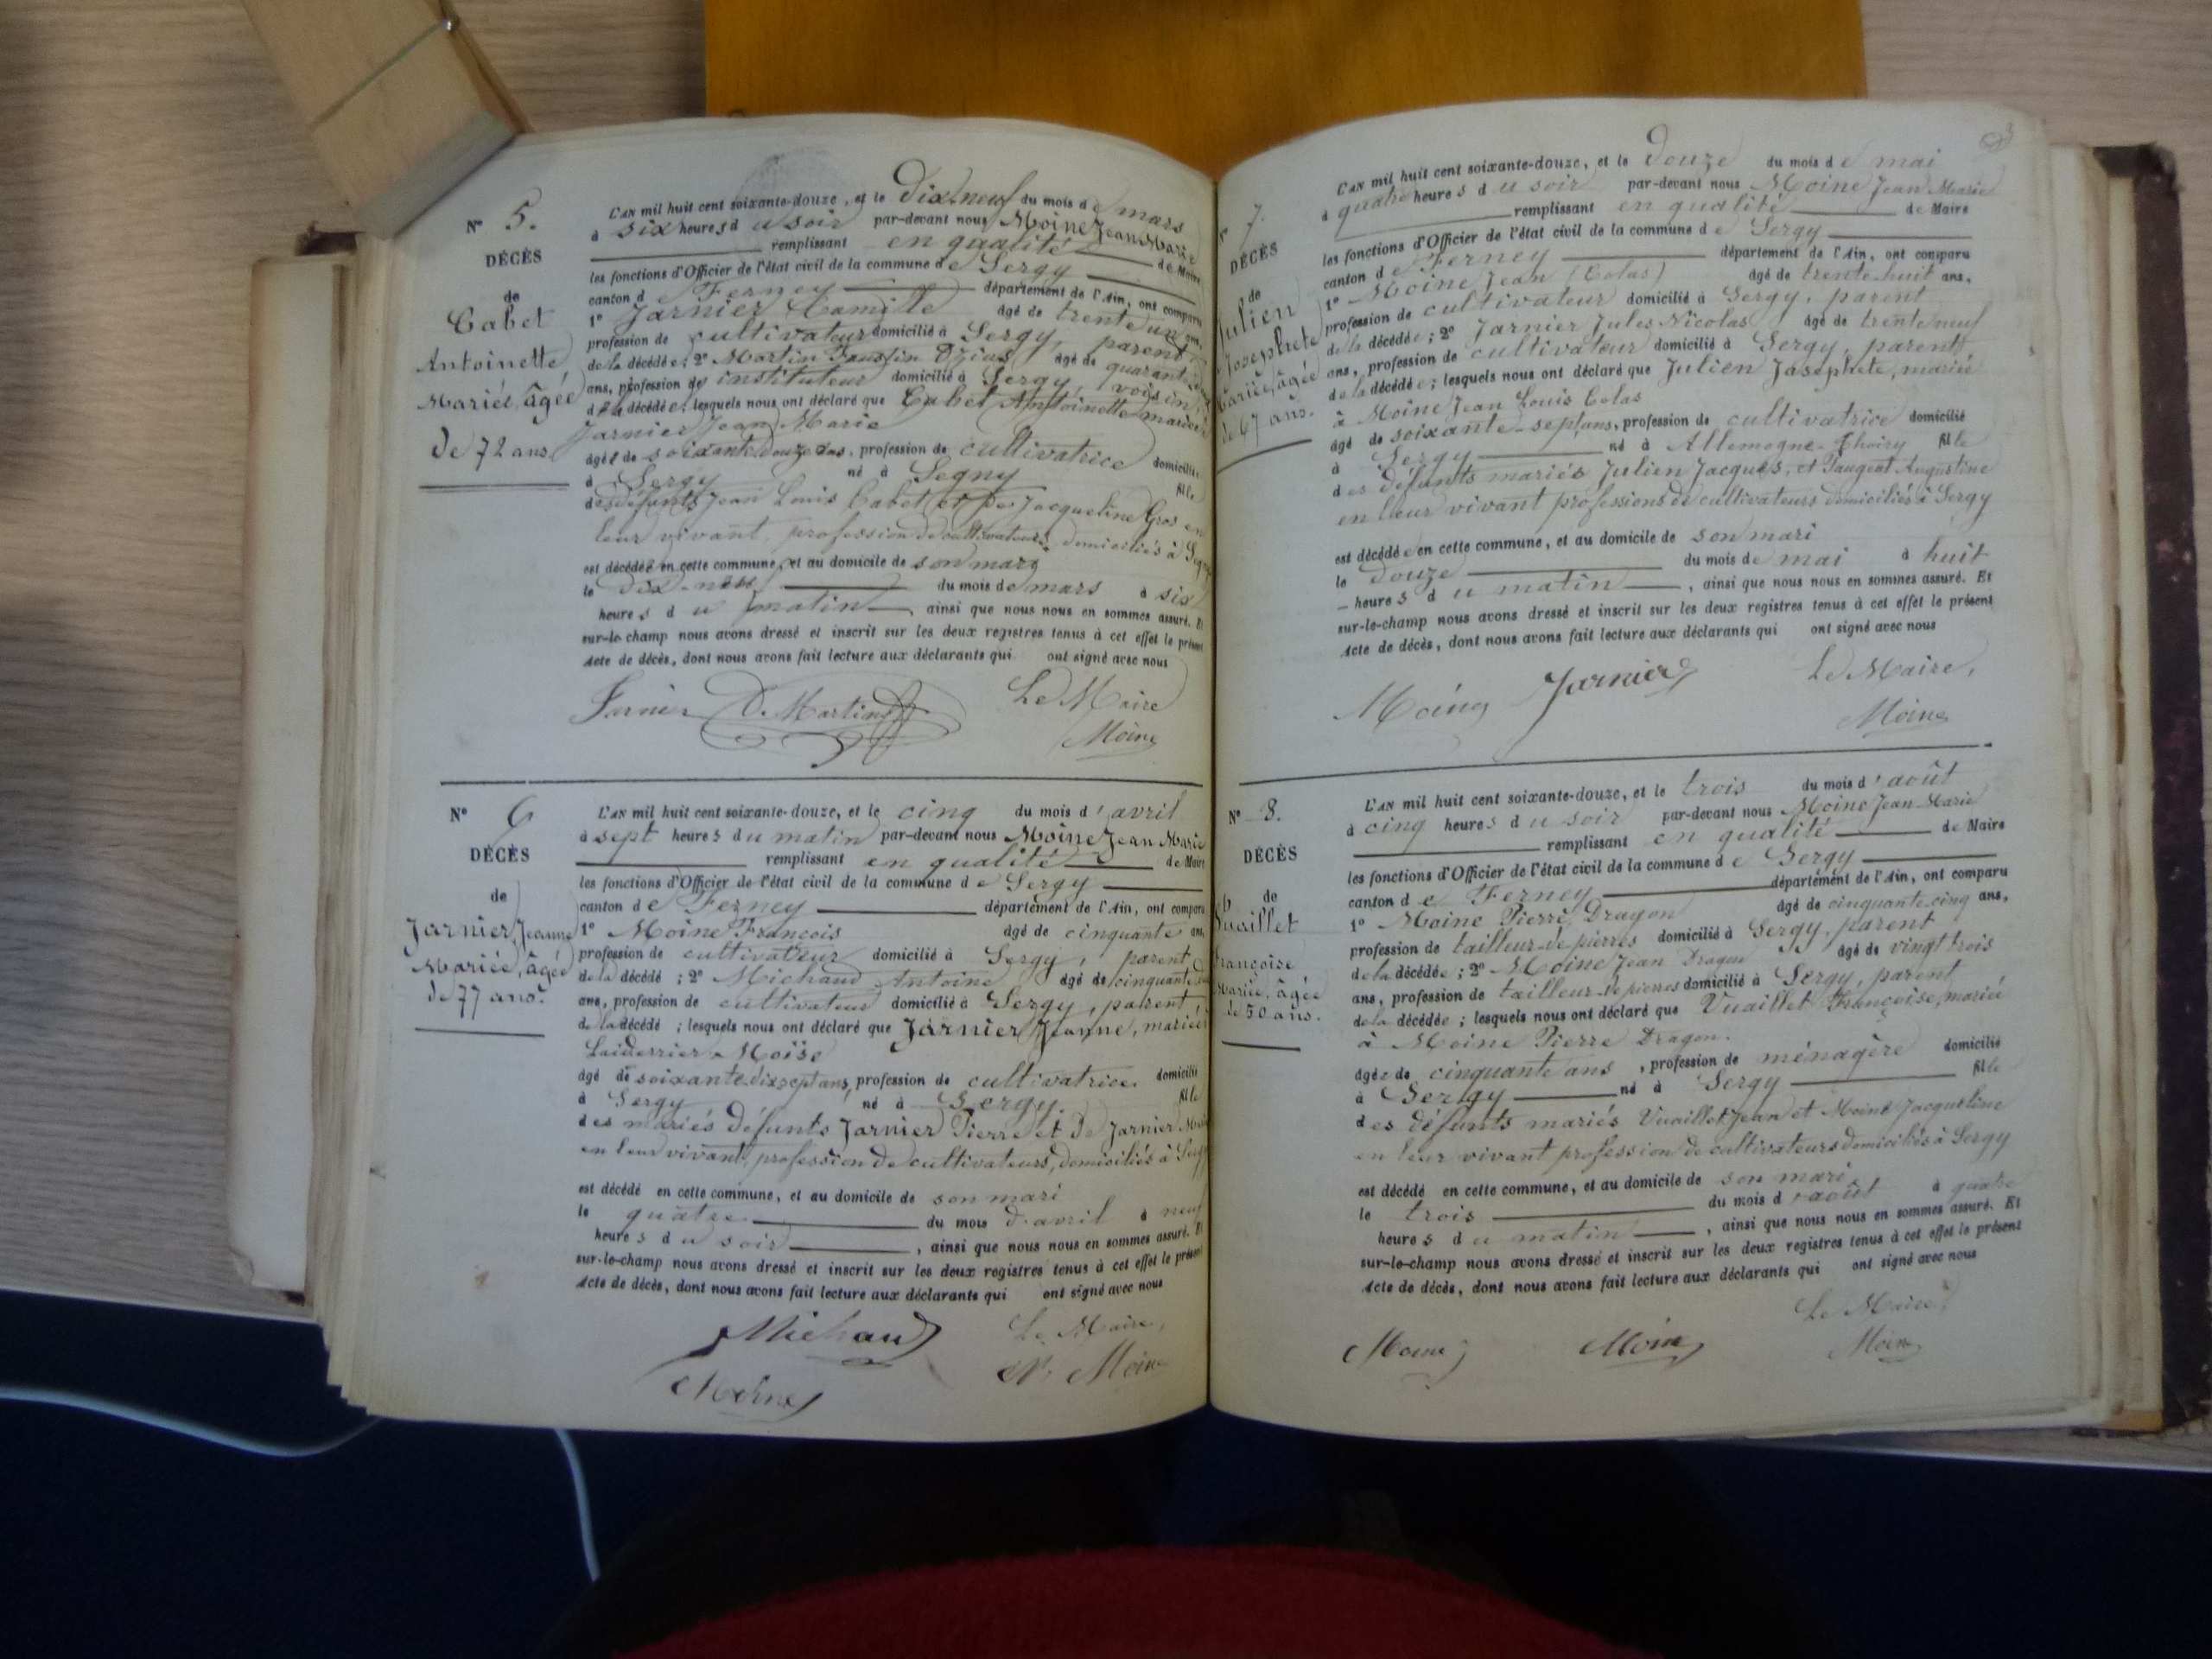 N° 5.
DÉCÈS
de
Cabet
Antoinette,
Mariée, âgée
de 72 ans
L'AN mil huit cent soixante-douze, et le dix-neuf du mois de mars
à six heures du soir par-devant nous Moine Jean Marie
remplissant en qualité de Maire
les fonctions d'Officier de l'état civil de la commune de Sergy
canton de Ferney département de l'Ain, ont comparu
1° Jarnier Camille âgé de trente un ans,
profession de cultivateur domicilié à Sergy, parent
de la décédée; 2° Martin Faustin âgé de quarante
ans, profession de instituteur domicilié à Sergy, voisin
de la décédée; lesquels nous ont déclaré que Cabet Antoinette mariée à
Jarnier Jean Marie
âgée de soixante douze ans, profession de cultivatrice domicilié
à Sergy né à Segny fille
des défunts Jean Louis Cabet et de Jacqueline Gros en
leur vivant, profession de cultivateurs domiciliés à Segny
est décédée en cette commune, et au domicile de son mary
le dix-neuf du mois de mars à six
heures du matin, ainsi que nous nous en sommes assuré. Et
sur-le-champ nous avons dressé et inscrit sur les deux registres tenus à cet effet le présent
Acte de décès, dont nous avons fait lecture aux déclarants qui ont signé avec nous
Jarnier Martin Le Maire
Moine
N° 6
DÉCÈS
de
Jarnier Jeanne
Mariée, âgée
de 77 ans.
L'AN mil huit cent soixante-douze, et le cinq du mois d'avril
à sept heures du matin par-devant nous Moine Jean Marie
remplissant en qualité de Maire
les fonctions d'Officier de l'état civil de la commune de Sergy
canton de Ferney département de l'Ain, ont comparu
1° Moine François âgé de cinquante ans,
profession de cultivateur domicilié à Sergy, parent
de la décédé; 2° Michaud Antoine âgé de cinquante
ans, profession de cultivateur domicilié à Sergy, parent
de la décédé; lesquels nous ont déclaré que Jarnier Jeanne, mariée à
Moïse
âgé de soixante dix sept ans, profession de cultivatrice domicilié
à Sergy né à Sergy. fille
des mariés défunts Jarnier Pierre et de Jarnier
en leur vivant, profession de cultivateurs, domiciliés à Sergy
est décédé en cette commune, et au domicile de son mari
le quatre du mois d'avril à neuf
heures du soir, ainsi que nous nous en sommes assuré. Et
sur-le-champ nous avons dressé et inscrit sur les deux registres tenus à cet effet le présent
Acte de décès, dont nous avons fait lecture aux déclarants qui ont signé avec nous
Michaud Le Maire,
Moine Moine
7.
DÉCÈS
de
Julien
Josephete
Mariée, âgée
de 67 ans.
L'AN mil huit cent soixante-douze, et le douze du mois de mai
à quatre heures du soir par-devant nous Moine Jean Marie
remplissant en qualité de Maire
les fonctions d'Officier de l'état civil de la commune de Sergy
canton de Ferney département de l'Ain, ont comparu
1° Moine Jean (Colas) âgé de trente-huit ans,
profession de cultivateur domicilié à Sergy, parent
de la décédée; 2° Jarnier Jules Nicolas âgé de trente neuf
ans, profession de cultivateur domicilié à Sergy, parent
de la décédée; lesquels nous ont déclaré que Julien Josephete, mariée
à Moine Jean Louis Colas
âgé de soixante-sept ans, profession de cultivatrice domicilié
à Sergy né à Allemogne-Thoiry fille
des défunts mariés Julien Jacques, et Augustine
en leur vivant professions de cultivateurs domiciliés à Sergy
est décédée en cette commune, et au domicile de son mari
le douze du mois de mai à huit
heures du matin, ainsi que nous nous en sommes assuré. Et
sur-le-champ nous avons dressé et inscrit sur les deux registres tenus à cet effet le présent
Acte de décès, dont nous avons fait lecture aux déclarants qui ont signé avec nous
Moine Jarnier Le Maire,
Moine
N° 8.
DÉCÈS
de
Vuaillet
Françoise
Mariée, âgée
de 50 ans.
L'AN mil huit cent soixante-douze, et le trois du mois d'août
à cinq heures du soir par-devant nous Moine Jean Marie
remplissant en qualité de Maire
les fonctions d'Officier de l'état civil de la commune de Sergy
canton de Ferney département de l'Ain, ont comparu
1° Moine Pierre Dragon âgé de cinquante-cinq ans,
profession de tailleur de pierres domicilié à Sergy, parent
de la décédée; 2° Moine Jean Dragon âgé de vingt trois
ans, profession de tailleur de pierres domicilié à Sergy, parent
de la décédée; lesquels nous ont déclaré que Vuaillet Françoise, mariée
à Moine Pierre Dragon.
âgée de cinquante ans, profession de ménagère domicilié
à Sergy né à Sergy fille
des défunts mariés Vuaillet Jean et Moine Jacqueline
en leur vivant profession de cultivateurs domiciliés à Sergy
est décédé en cette commune, et au domicile de son mari
le trois du mois d'août à quatre
heures du matin, ainsi que nous nous en sommes assuré. Et
sur-le-champ nous avons dressé et inscrit sur les deux registres tenus à cet effet le présent
Acte de décès, dont nous avons fait lecture aux déclarants qui ont signé avec nous
Le Maire,
Moine Moine Moine